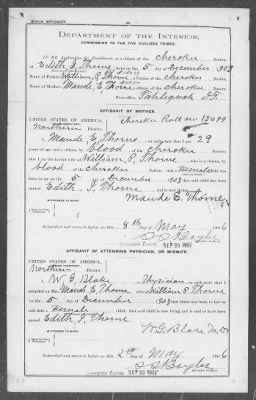 BIRTH AFFIDAVIT.
DEPARTMENT OF THE INTERIOR.
COMMISSION TO THE FIVE CIVILIZED TRIBES.
IN RE Application for Enrollment, as a citizen of the Cherokee Nation,
of Edith I. Thorne, born on the 5 day of December, 1903
Name of Father: William P. Thorne a citizen of the Cherokee Nation.
Name of Mother: Maude E. Thorne a citizen of the Cherokee Nation.
Postoffice Tahlequah I.T.
AFFIDAVIT OF MOTHER.
UNITED STATES OF AMERICA,
Northern District.
Cherokee Roll
I, Maude E. Thorne, on oath state that I am 29
years of age and a citizen by blood of the Cherokee Nation;
that I am the lawful wife of William P. Thorne, who is a citizen, by
blood of the Cherokee Nation; that a female child was
born to me on the 5 day of December 1903 that said child has been
named Edith I. Thorne
Maude E. Thorne
Subscribed and sworn to before me this 8th day of May, 1906
AFFIDAVIT OF ATTENDING PHYSICIAN, OR MIDWIFE.
UNITED STATES OF AMERICA,
Northern District.
I, W. G. Blake, a Physician, on oath state that I
attended on Mrs. Maude E. Thorne, wife of William P. Thorne
on the 5 day of December, 1903; that there was born to her on said
date a Female child; that said child is now living and is said to have been
named Edith I. Thorne
W. G. Blake M.D.
Subscribed and sworn to before me this day of May, 1906